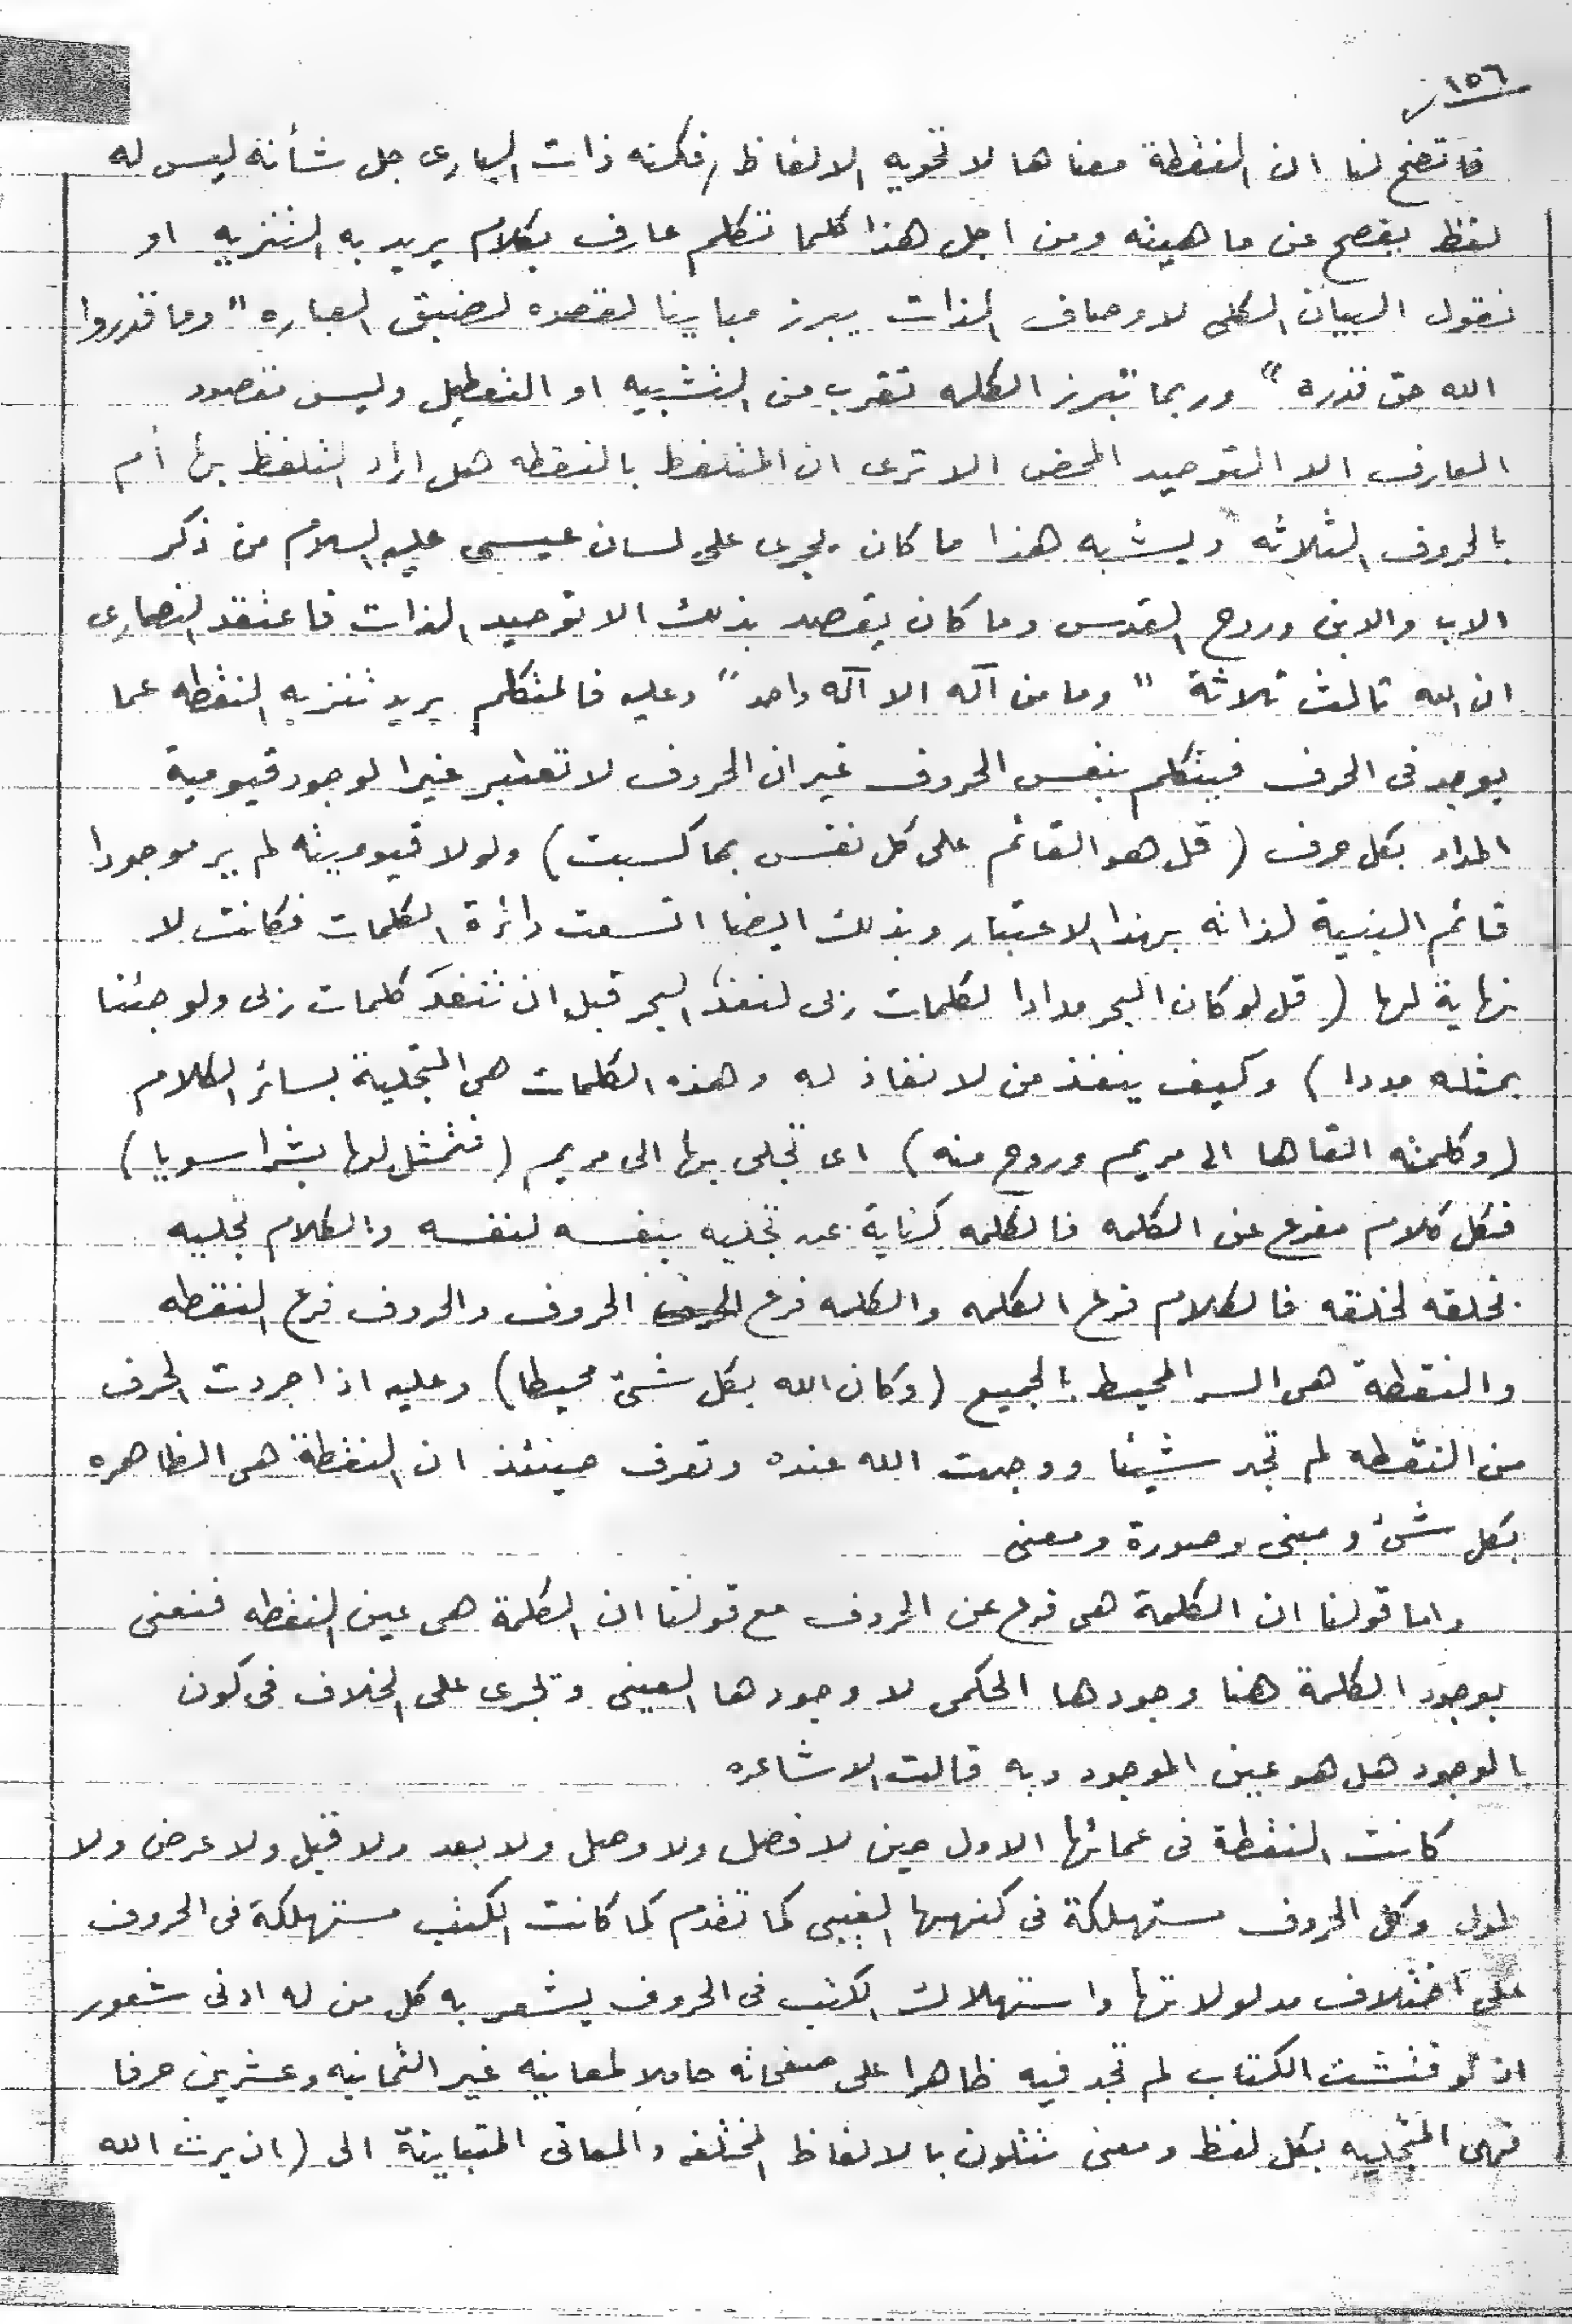 ١٥٦
فاتضح لنا ان النقطة معناها لا تحويه الالفاظ , فكنه ذات البارى جل شأنه ليس له
لفظ يفصح عن ماهيته ومن اجل هذا كلما تكلم عارف بكلام يريد به التنزيه او
نقول البيان الكلى لاوصاف الذات يبرز مباينا لقصده لضيق العباره " وما قدروا
الله حق قدره " وربما تبرز الكلمه تقرب من التشبيه او التعطيل وليس مقصود
العارف الا التوحيد المحض الا ترى ان المتلفظ بالنقطه هل اراد التلفظ بها أم
بالحروف الثلاثه ويشبه هذا ما كان يجرى على لسان عيسى عليه السلام من ذكر
الاب والابن وروح القدس وما كان يقصد بذلك الا توحيد الذات فاعتقد النصارى
ان الله ثالث ثلاثة " وما من آله الا آله واحد " وعليه فالمتكلم يريد تنزيه النقطه عما
يوجد فى الحرف فيتكلم بنفس الحروف غير ان الحروف لا تعتبر غيرا لوجود قيومية
المداد بكل حرف ( قل هو القائم على كل نفس بما كسبت ) ولولا قيوميته لم ير موجودا
قائم البنية لذاته بهذا الاعتبار وبذلك ايضا اتسعت دائرة الكلمات فكانت لا
نهاية لها ( قل لو كان البحر مدادا لكلمات ربى لنفذ البحر قبل ان تنفذ كلمات ربى ولو جئنا
بمثله مددا ) وكيف ينفذ من لا نفاذ له وهذه الكلمات هى المتجلية بسائر الكلام
( وكلمته القاها الى مريم وروح منه ) اى تجلى بها الى مريم ( فتمثل لها بشرا سويا )
فكل كلام مفرع عن الكلمه فالكلمه كناية عن تجليه بنفسه لنفسه والكلام تجليه
بخلقه لخلقه فالكلام فرع الكلمه والكلمه فرع الحروف والحروف فرع النقطه
والنقطة هى السر المحيط بالجميع ( وكان الله بكل شئ محيطا ) وعليه اذا جردت الحرف
من النقطه لم تجد شيئا ووجدت الله عنده وتعرف حينئذ ان النقطة هى الظاهره
بكل شئ ومبنى وصورة ومعنى
واما قولنا ان الكلمة هى فرع عن الحروف مع قولنا ان الكلمة هى عين النقطه فنعنى
بوجود الكلمة هنا وجودها الحكمى لا وجودها العينى وتجرى على الخلاف فى كون
الوجود هل هو عين الموجود وبه قالت الاشاعره
كانت النقطة فى عمائها الاول حين لا فصل ولا وصل ولا بعد ولا قبل ولا عرض ولا
طول وكل الحروف مستهلكة فى كنهها الغيبى كما تقدم كما كانت الكتب مستهلكة فى الحروف
على اختلاف مدلولاتها واستهلاك الكتب فى الحروف يشعر به كل من له ادنى شعور
اذ لو فتشت الكتاب لم تجد فيه ظاهرا على صفحاته حاملا لمعانيه غير الثمانيه وعشرين حرفا
فهى المتجليه بكل لفظ ومعنى تتلون بالالفاظ المختلفه والمعانى المتباينة الى ( ان يرث الله